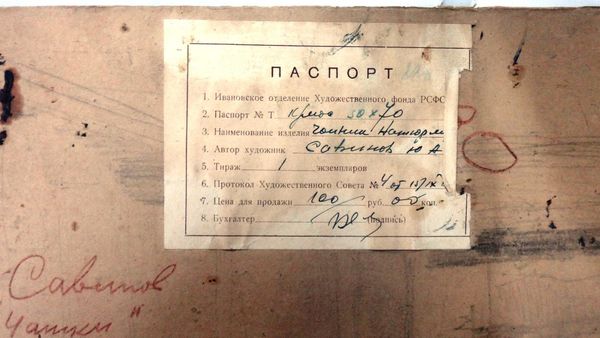 ПАСПОРТ
1. Ивановское отделение Художественного фонда РСФС
2. Паспорт № Т 50 x 70
3. Наименование изделия Чайник Натюрм
4. Автор художник Савинов Ю А
5. Тираж 1 экземпляров
6. Протокол Художественного Совета № 4 от
7. Цена для продажи 100 руб. 00 коп.
8. Бухгалтер (подпись)
Савинов
"Чашки"